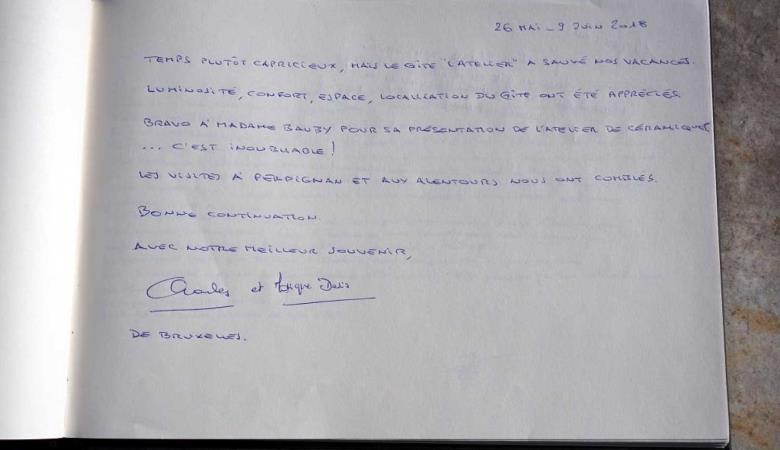 26 MAI - 9 JUIN 2018
TEMPS PLUTÔT CAPRICIEUX, MAIS LE GÎTE "L'ATELIER" A SAUVÉ NOS VACANCES.
LUMINOSITÉ, CONFORT, ESPACE, LOCALISATION DU GÎTE ONT ÉTÉ APPRÉCIÉS
BRAVO À MADAME BAUBY POUR SA PRÉSENTATION DE L'ATELIER DE CÉRAMIQUES
... C'EST INOUBLIABLE !
LES VISITES À PERPIGNAN ET AUX ALENTOURS NOUS ONT COMBLÉS.
BONNE CONTINUATION.
AVEC NOTRE MEILLEUR SOUVENIR,
Charles et
DE BRUXELLES.